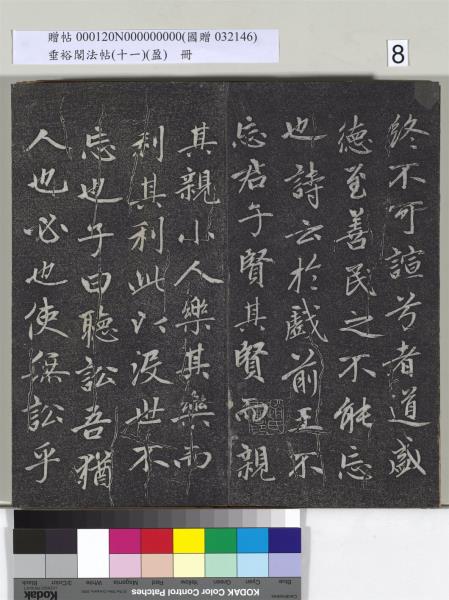 贈帖 000120N000000000(國贈 032146)
垂裕閣法帖(十一)(盈) 冊
8
終不可諠兮者道盛
德至善民之不能忘
也詩云於戲前王不
忘君子賢其賢而親
其親小人樂其樂而
利其利此以没世不
忘也子曰聽訟吾猶
人也必也使無訟乎
Blue Cyan Green Yellow Red Magenta White 3/Color Black
KODAK Color Control Patches
Kodak